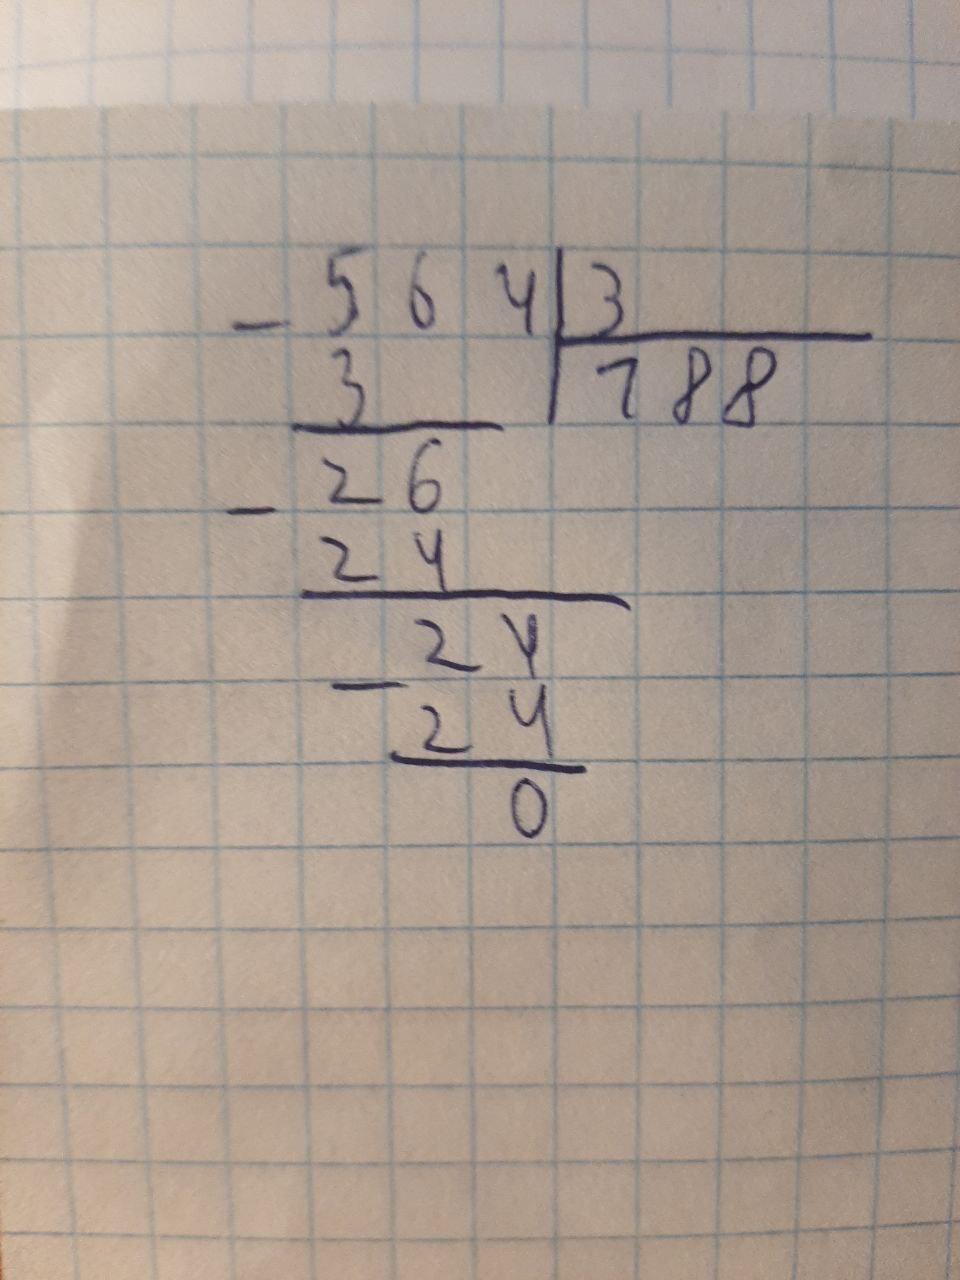 - 564 | 3
3 | 188
- 26
24
- 24
24
0